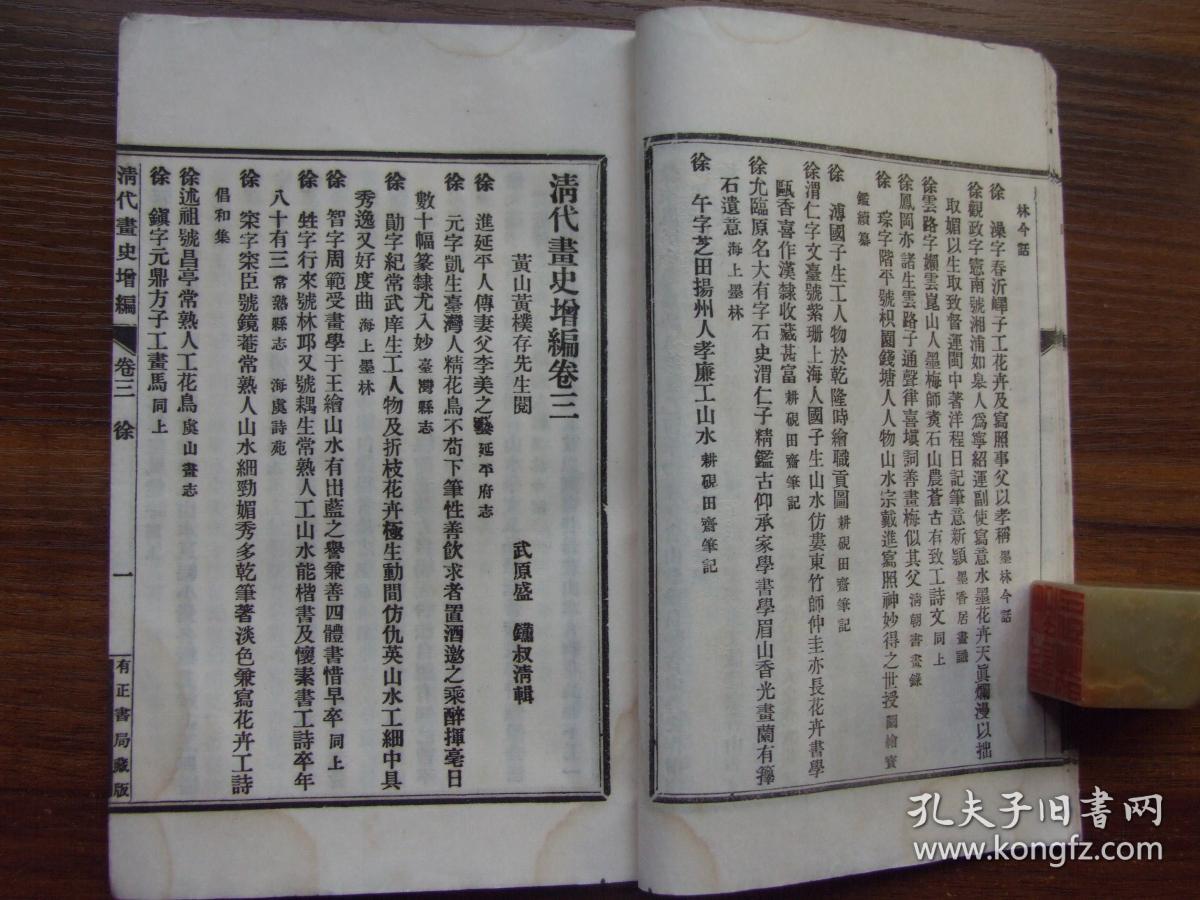 林今話
徐　澡字春沂嶧子工花卉及寫照事父以孝稱墨林今話
徐觀政字憲南號湘浦如皋人爲寧紹運副使寫意水墨花卉天眞爛漫以拙
取媚以生取致督運閩中著洋程日記筆意新穎墨香居畫識
徐雲路字嬾雲崑山人墨梅師煑石山農蒼古有致工詩文同上
徐鳳岡亦諸生雲路子通聲律喜塡詞善畫梅似其父淸朝書畫錄
徐　琮字階平號枳園錢塘人人物山水宗戴進寫照神妙得之世授圖繪寶
鑑續纂
徐　溥國子生工人物於乾隆時繪職貢圖耕硯田齋筆記
徐渭仁字文臺號紫珊上海人國子生山水仿婁東竹師仲圭亦長花卉書學
甌香喜作漢隸收藏甚富耕硯田齋筆記
徐允臨原名大有字石史渭仁子精鑑古仰承家學書學眉山香光畫蘭有籜
石遺意海上墨林
徐　午字芝田揚州人孝廉工山水耕硯田齋筆記
淸代畫史增編卷三
黃山黃樸存先生閱
武原盛　鏽叔淸輯
徐　進延平人傳妻父李美之藝延平府志
徐　元字凱生臺灣人精花鳥不苟下筆性善飮求者置酒邀之乘醉揮毫日
數十幅篆隸尤入妙臺灣縣志
徐　勛字紀常武庠生工人物及折枝花卉極生動間仿仇英山水工細中具
秀逸又好度曲海上墨林
徐　智字周範受畫學于王繪山水有出藍之譽兼善四體書惜早卒同上
徐　甡字行來號林邛又號耦生常熟人工山水能楷書及懷素書工詩卒年
八十有三常熟縣志　海虞詩苑
徐　寀字寀臣號鏡菴常熟人山水細勁媚秀多乾筆著淡色兼寫花卉工詩
倡和集
徐述祖號昌亭常熟人工花鳥虞山畫志
徐　鎭字元鼎方子工畫馬同上
淸代畫史增編　卷三　徐　一　有正書局藏版
孔夫子旧书网
www.kongfz.com